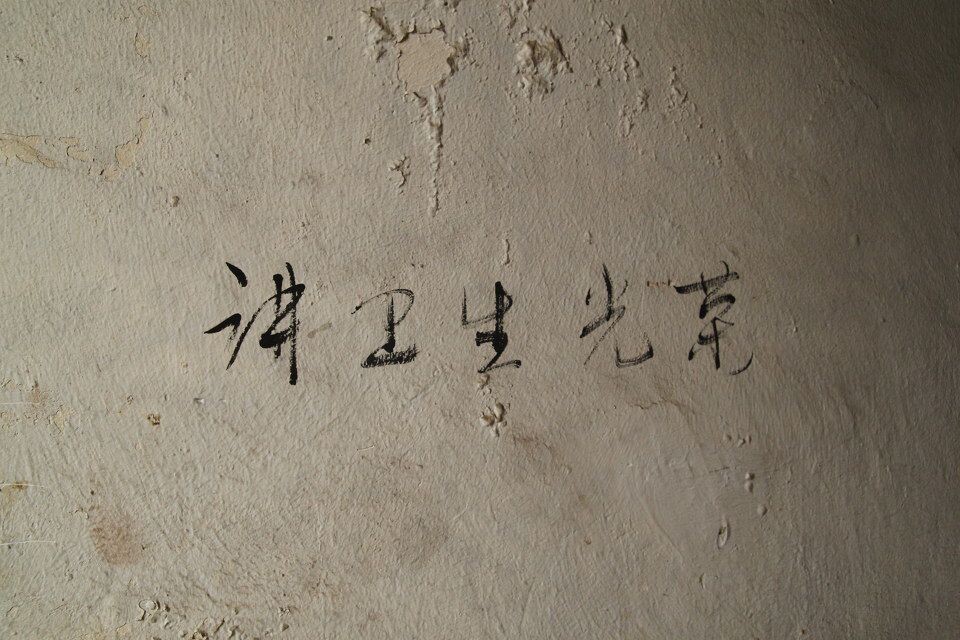 讲卫生光荣